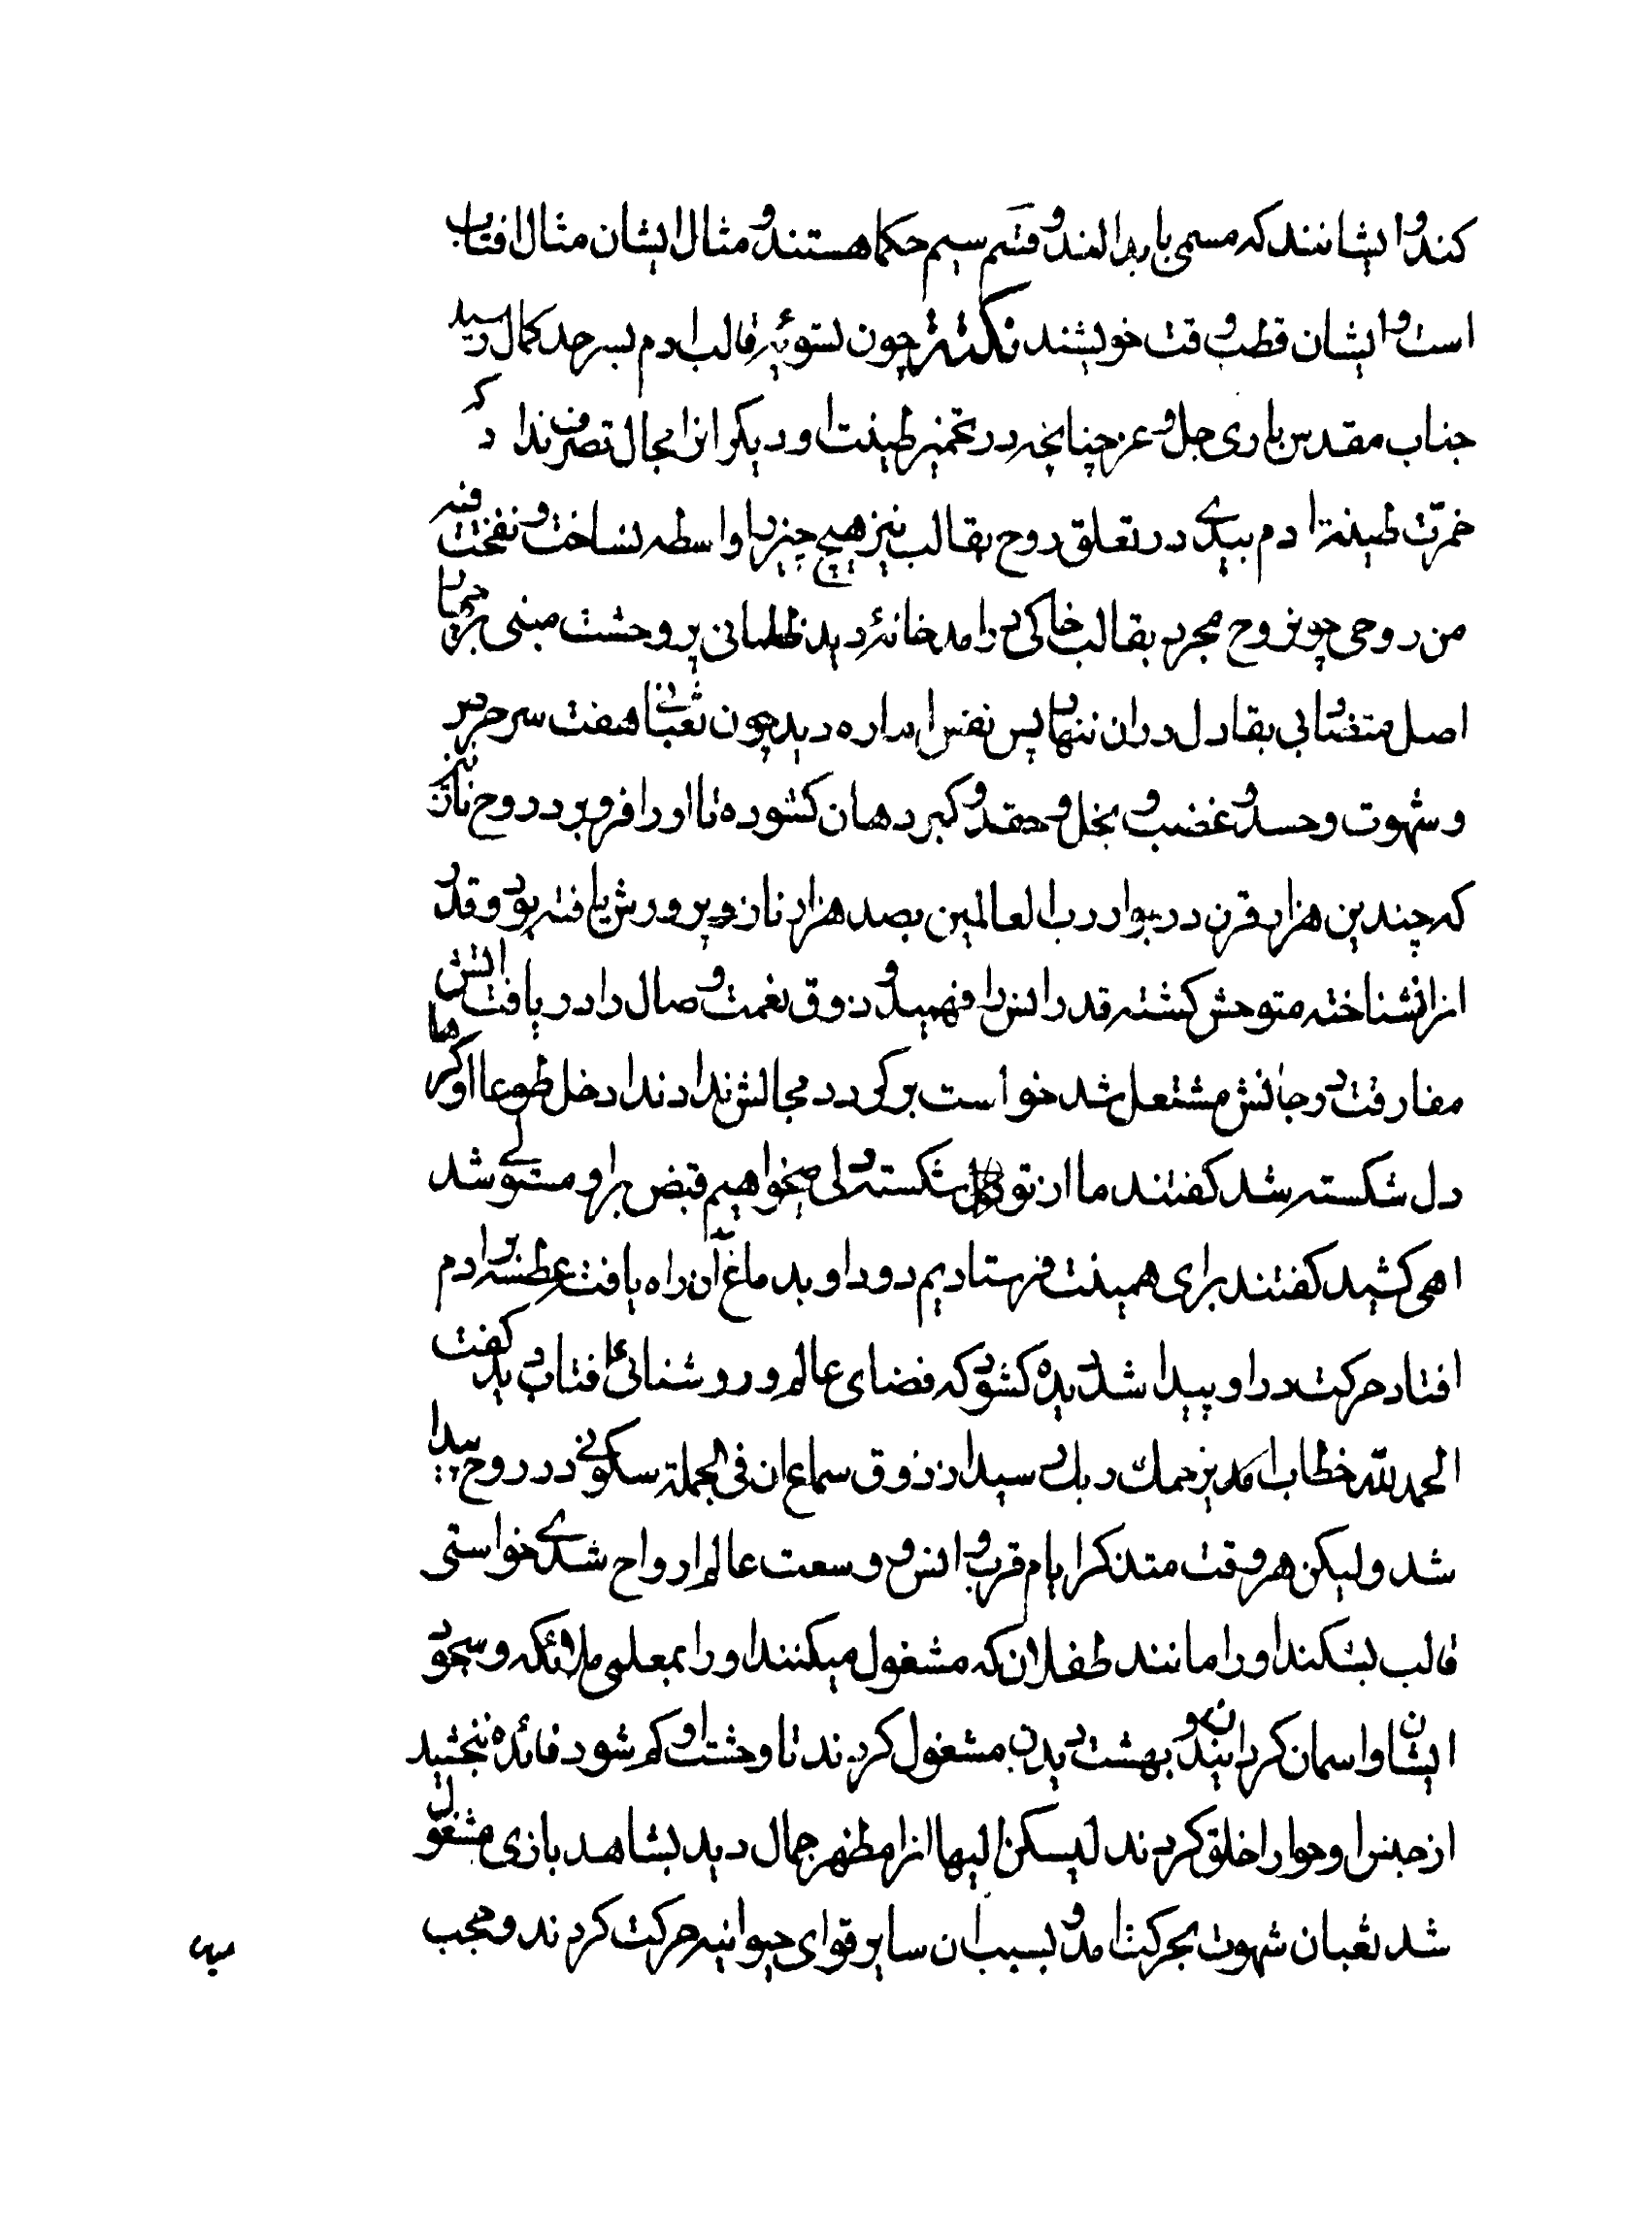 کند و ایشانند که مسمی بابدالند و قسم سیم حکما هستند و مثال ایشان مثال افتاب
است و ایشان قطب وقت خویشند نکتة چون تسویه قالب ادم بسرحد کمال رسید
جناب مقدس باری جل و عز چنانچه در تخمیر طینت او دیکرانرا مجال تصرف نداد که
خمرّت طینة ادم بیدی در تعلق روح بقالب نیز هیچ چیز را واسطه نساخت و نفخت فیه
من روحی چون روح مجرد بقالب خاکی درامد خانهٔ دید ظلمانی پر وحشت مبنی بر چهار
اصل متضاد بی بقا دل دران ننهاد پس نفس اماره دید چون ثعبانی با هفت سر حرص
و شهوت و حسد و غضب و بخل و حقد و کبر دهان کشوده تا او را فرو برد روح نازنین
که چندین هزار قرن در جوار رب العالمین بصد هزار ناز پرورش یافته بود و قدر
انرا نشناخته متوحش کشته قدر انس را فهمید و ذوق نعمت وصال را دریافت اتش
مفارقت در جانش مشتعل شد خواست بر کردد مجالش ندادند ادخل طوعا او کرها
دل شکسته شد کفتند ما از تو دل شکسته دلی میخواهیم قبض بر او مستولی شد
اهی کشید کفتند برای همینت فرستادیم دود او بدماغ ان راه یافت عطسه بر ادم
افتاد حرکت در او پیدا شد دیده کشود که فضای عالم و روشنائی افتاب دید کفت
الحمد لله خطاب امد یرحمك ربك رسید از ذوق سماع ان فی الجملة سکونی در روح پیدا
شد ولیکن هر وقت متذکر ایام قرب و انس و وسعت عالم ارواح شدی خواستی
قالب بشکند او را مانند طفلان که مشغول میکنند او را بمعلمی ملائکه و سجود
ایشان او اسمان کردانیدن و بهشت دیدن مشغول کردند تا وحشت او کم شود فائده نبخشید
از جنس او حوا را خلق کردند لیسکن الیها انرا مظهر جمال دید بشاهد بازی مشغول
شد ثعبان شهوت بحرکت امد و بسبب ان سایر قوای حیوانیه حرکت کردند و حجب